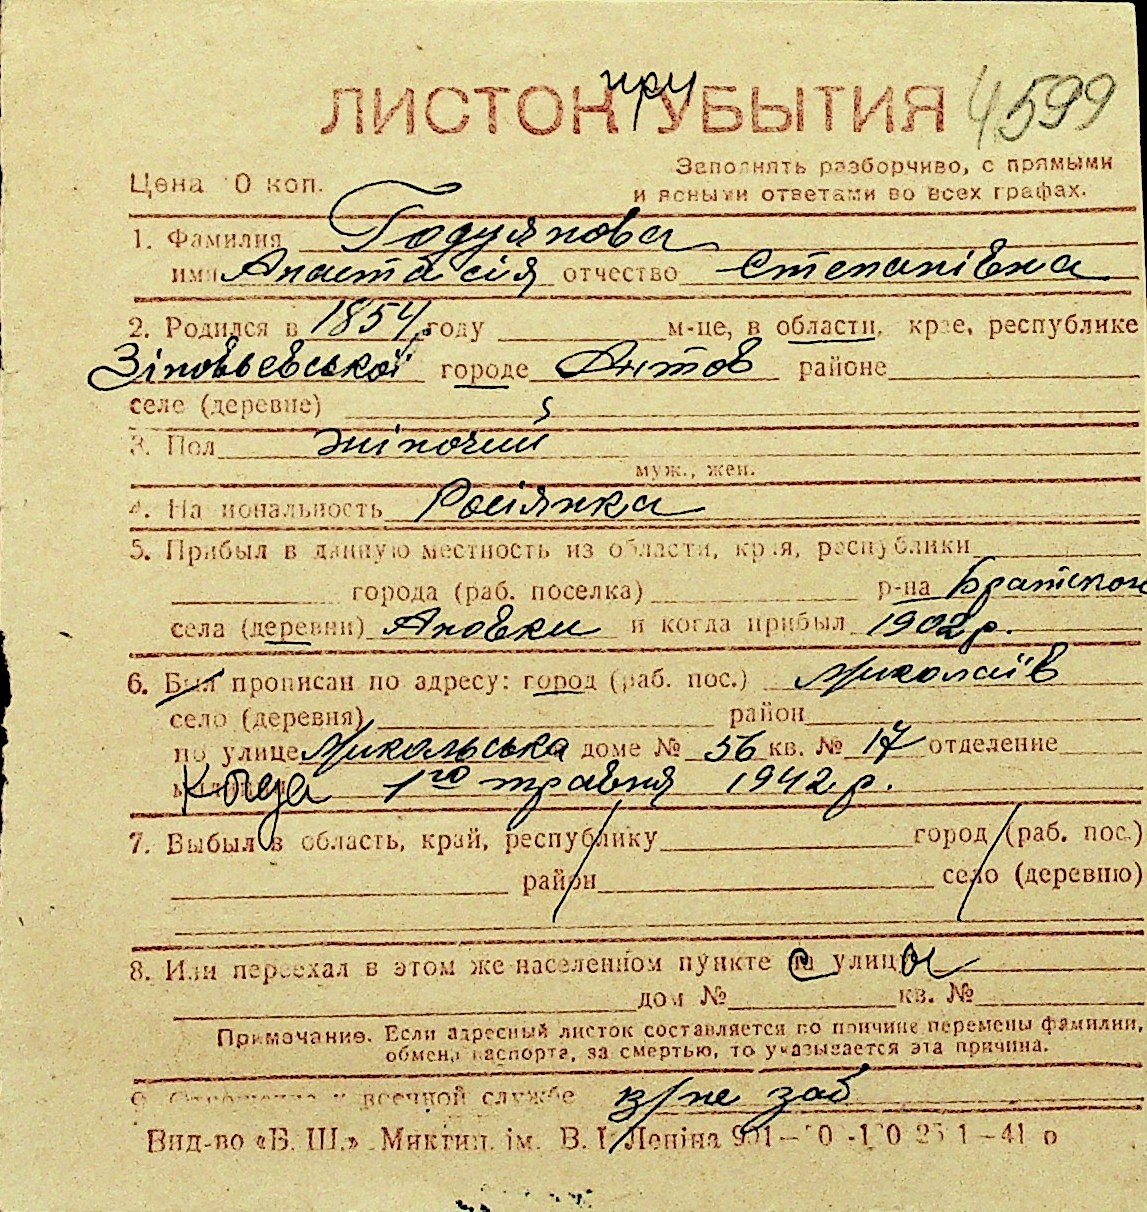 ЛИСТОК при УБЫТИЯ 4599
Цена 0 коп.
Заполнять разборчиво, с прямыми
и ясными ответами во всех графах.
1. Фамилия Годулянова
имя Анастасія отчество Степанівна
2. Родился в 1854 году м-це, в области, крае, республике
Зіновьевської городе районе
селе (деревне)
3. Пол жіночий
муж., жен.
4. Национальность Росіянка
5. Прибыл в данную местность из области, края, республики
города (раб. поселка) р-на Братском
села (деревни) Ановки и когда прибыл 1902 р.
6. Был прописан по адресу: город (раб. пос.) Миколаїв
село (деревня) район
по улице Микольська доме № 56 кв. № 17 отделение
Когда 1го травня 1942 р.
7. Выбыл в область, край, республику город (раб. пос.)
район село (деревню)
8. Или переехал в этом же населенном пункте с улицы
дом № кв. №
Примечание. Если адресный листок составляется по причине перемены фамилии,
обмена паспорта, за смертью, то указывается эта причина.
9. Отношение к военной службе в/не заб
Вид-во «Б. Ш.» Миктип. ім. В. І. Леніна